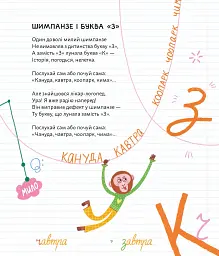 ШИМПАНЗЕ І БУКВА «З»
Один доволі милий шимпанзе
Не вимовляв з дитинства букву «З»,
А замість «З» літеру вставляв «К» —
Історія, погодься, нелегка.
Послухай сам або почуй сама:
«Кануда, кавтра, коопарк, чима»...
Але знайшовся лікар-логопед,
Ура! Я вже радію наперед!
Він виправив дефект у шимпанзе —
Ту букву, що лунала замість «З».
Послухай сам або почуй сама:
«Чануда, чавтра, чоопарк, чима»...
КООПАРК
ЧООПАРК
ЧИМА
З
КАВТРА
КАНУДА
МИЛО
К
чавтра
завтра